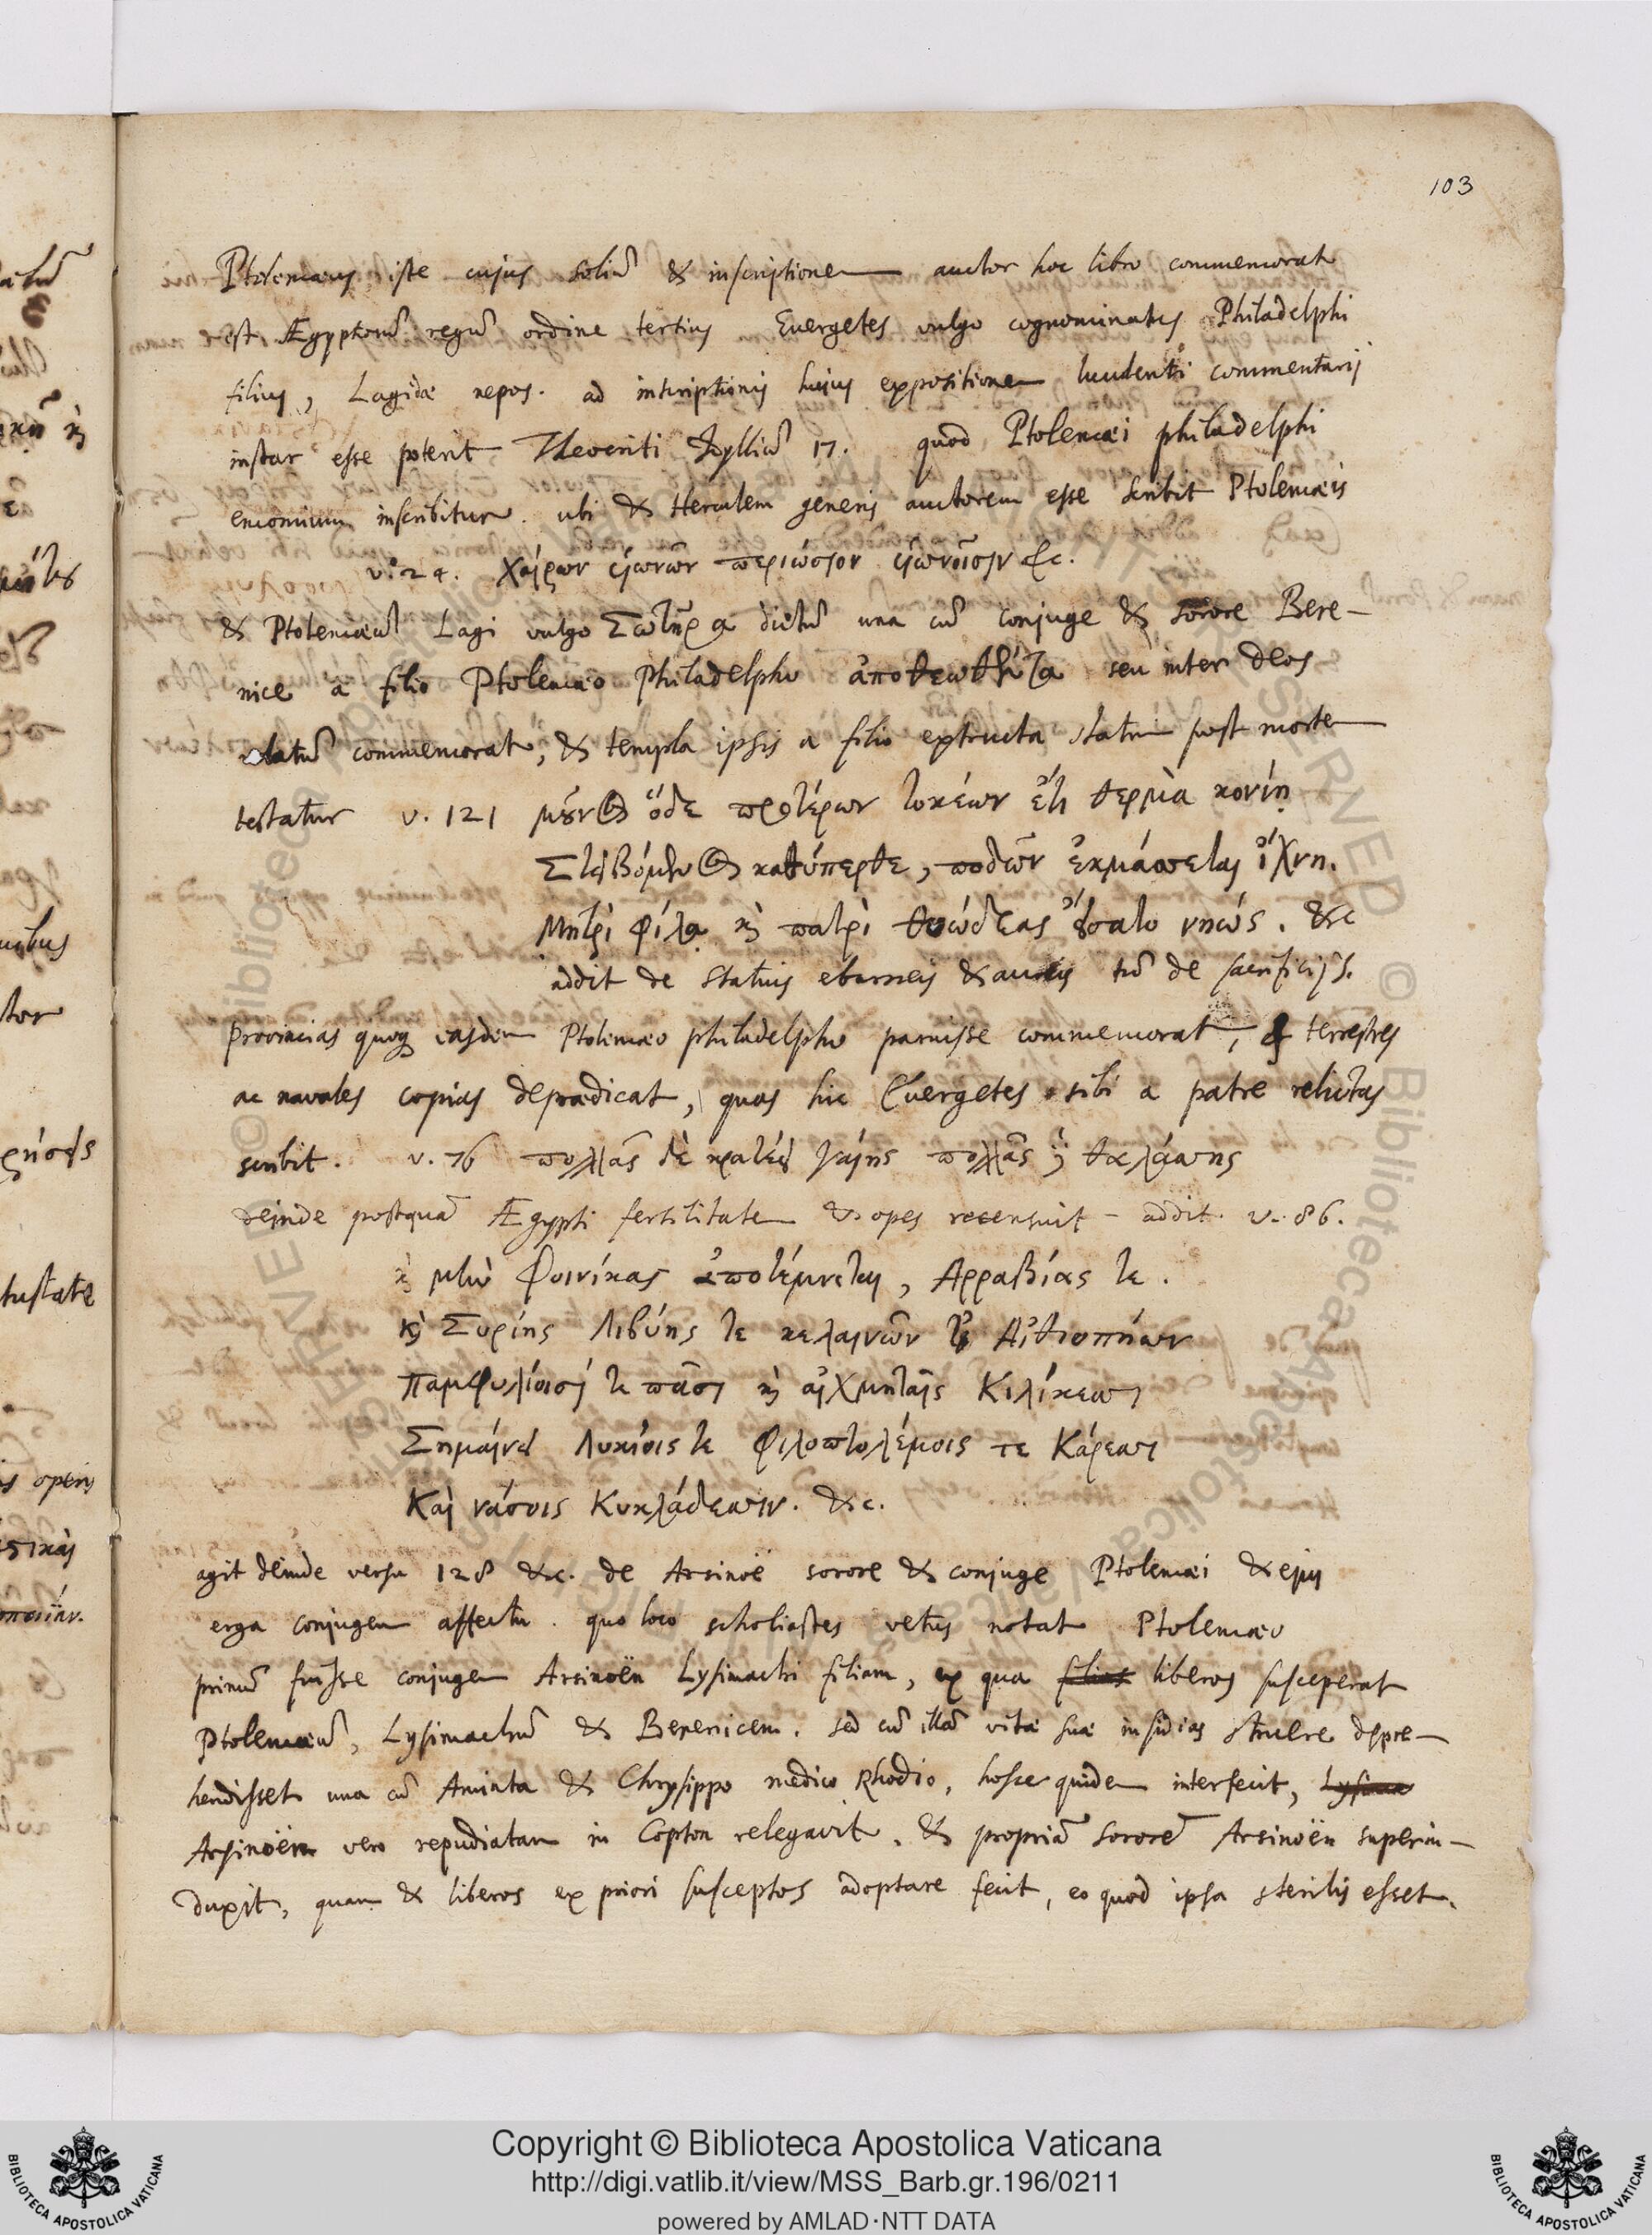 103
Ptolemæus iste cujus soliũ & inscriptionem auctor hoc libro commemorat
est Ægyptiorũ regũ ordine tertius Euergetes vulgo cognominatus Philadelphi
filius, Lagidæ nepos. ad inscriptionis hujus expositionem luculenti commentarij
instar esse poterit Theocriti Idylliũ 17. quod Ptolemæi philadelphi
encomium inscribitur. ubi & Herculem generis auctorem esse scribit Ptolemæis
v. 24. Χαίρων υἱωνῶν περιώσιον υἱωνοῖσιν &c.
& Ptolemæũ Lagi vulgo Σωτῆρα dictũ una cũ conjuge & sorore Bere-
nice a filio Ptolemæo Philadelpho ἀποθεωθέντα seu inter deos
relatũ commemorat, & templa ipsis a filio extructa statim post mortem
testatur v. 121 μοῦνος ὅδε προτέρων τοκέων ἔτι θερμὰ κονίῃ
Στειβόμενος καθύπερθε, ποδῶν ἐκμάσσεται ἴχνη.
Μητρὶ φίλᾳ καὶ πατρὶ θυώδεας εἵσατο νηώς. &c
addit de statuis eburneis & aureis tũ de sacrificijs.
Provincias quoq easdem Ptolemæo philadelpho paruisse commemorat, & terrestres
ac navales copias deprædicat, quas hic Euergetes sibi a patre relictas
scribit. v. 76 πολλᾶς δὲ κρατέει γαίης πολλᾶς δὲ θαλάσσης
deinde postquã Ægypti fertilitatem & opes recensuit - addit v. 86.
καὶ μὴν Φοινίκας ἀποτέμνεται, Ἀρραβίας τε.
καὶ Συρίης Λιβύης τε κελαινῶν τ' Αἰθιοπήων
Παμφυλίοισί τε πᾶσι καὶ αἰχμηταῖς Κιλίκεσσι
Σημαίνει Λυκίοις τε φιλοπτολέμοις τε Κάρεσσι
Καὶ νάσοις Κυκλάδεσσιν. &c.
agit deinde versu 128 &c. de Arsinoë sorore & conjuge Ptolemæi & ejus
erga conjugem affectu. quo loco scholiastes vetus notat Ptolemæo
primũ fuisse conjugem Arsinoën Lysimachi filiam, ex qua filios liberos susceperat
Ptolemæũ, Lysimachũ & Berenicem. sed cũ illã vitæ suæ insidias struere depre-
hendisset una cũ Aminta & Chrysippo medico Rhodio, hosce quidem interfecit, Lysima
Arsinoën vero repudiatam in Copton relegavit. & propriã sororẽ Arsinoën superin-
duxit, quam & liberos ex priori susceptos adoptare fecit, eo quod ipsa sterilis esset.
Copyright © Biblioteca Apostolica Vaticana
http://digi.vatlib.it/view/MSS_Barb.gr.196/0211
powered by AMLAD·NTT DATA
BIBLIOTECA APOSTOLICA VATICANA
BIBLIOTECA APOSTOLICA VATICANA